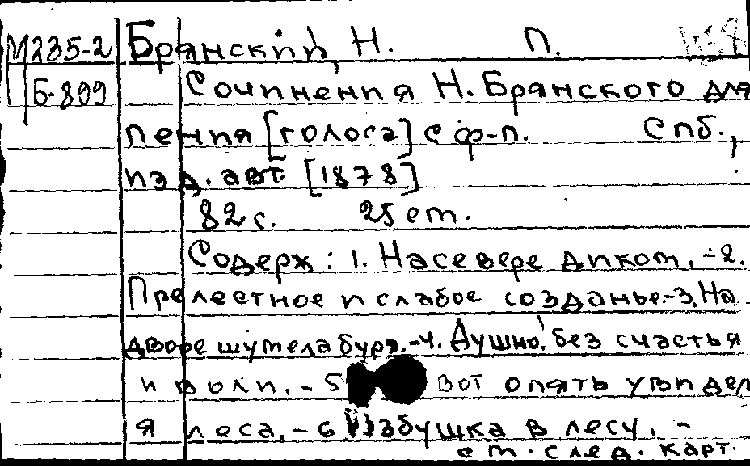 М235-2 Брянский, Н. П.
Б-899 Сочинения Н. Брянского для
пения [голоса] с ф-п. Спб.,
изд. авт. [1878]
82 с. 25 ст.
Содерж: 1. На севере диком. -2.
Прелестное и слабое созданье.-3. На
дворе шумела буря.-4. Душно! без счастья
и воли. - 5 Вот опять увидел
я леса. - 6 Избушка в лесу. -
ст. след. карт.